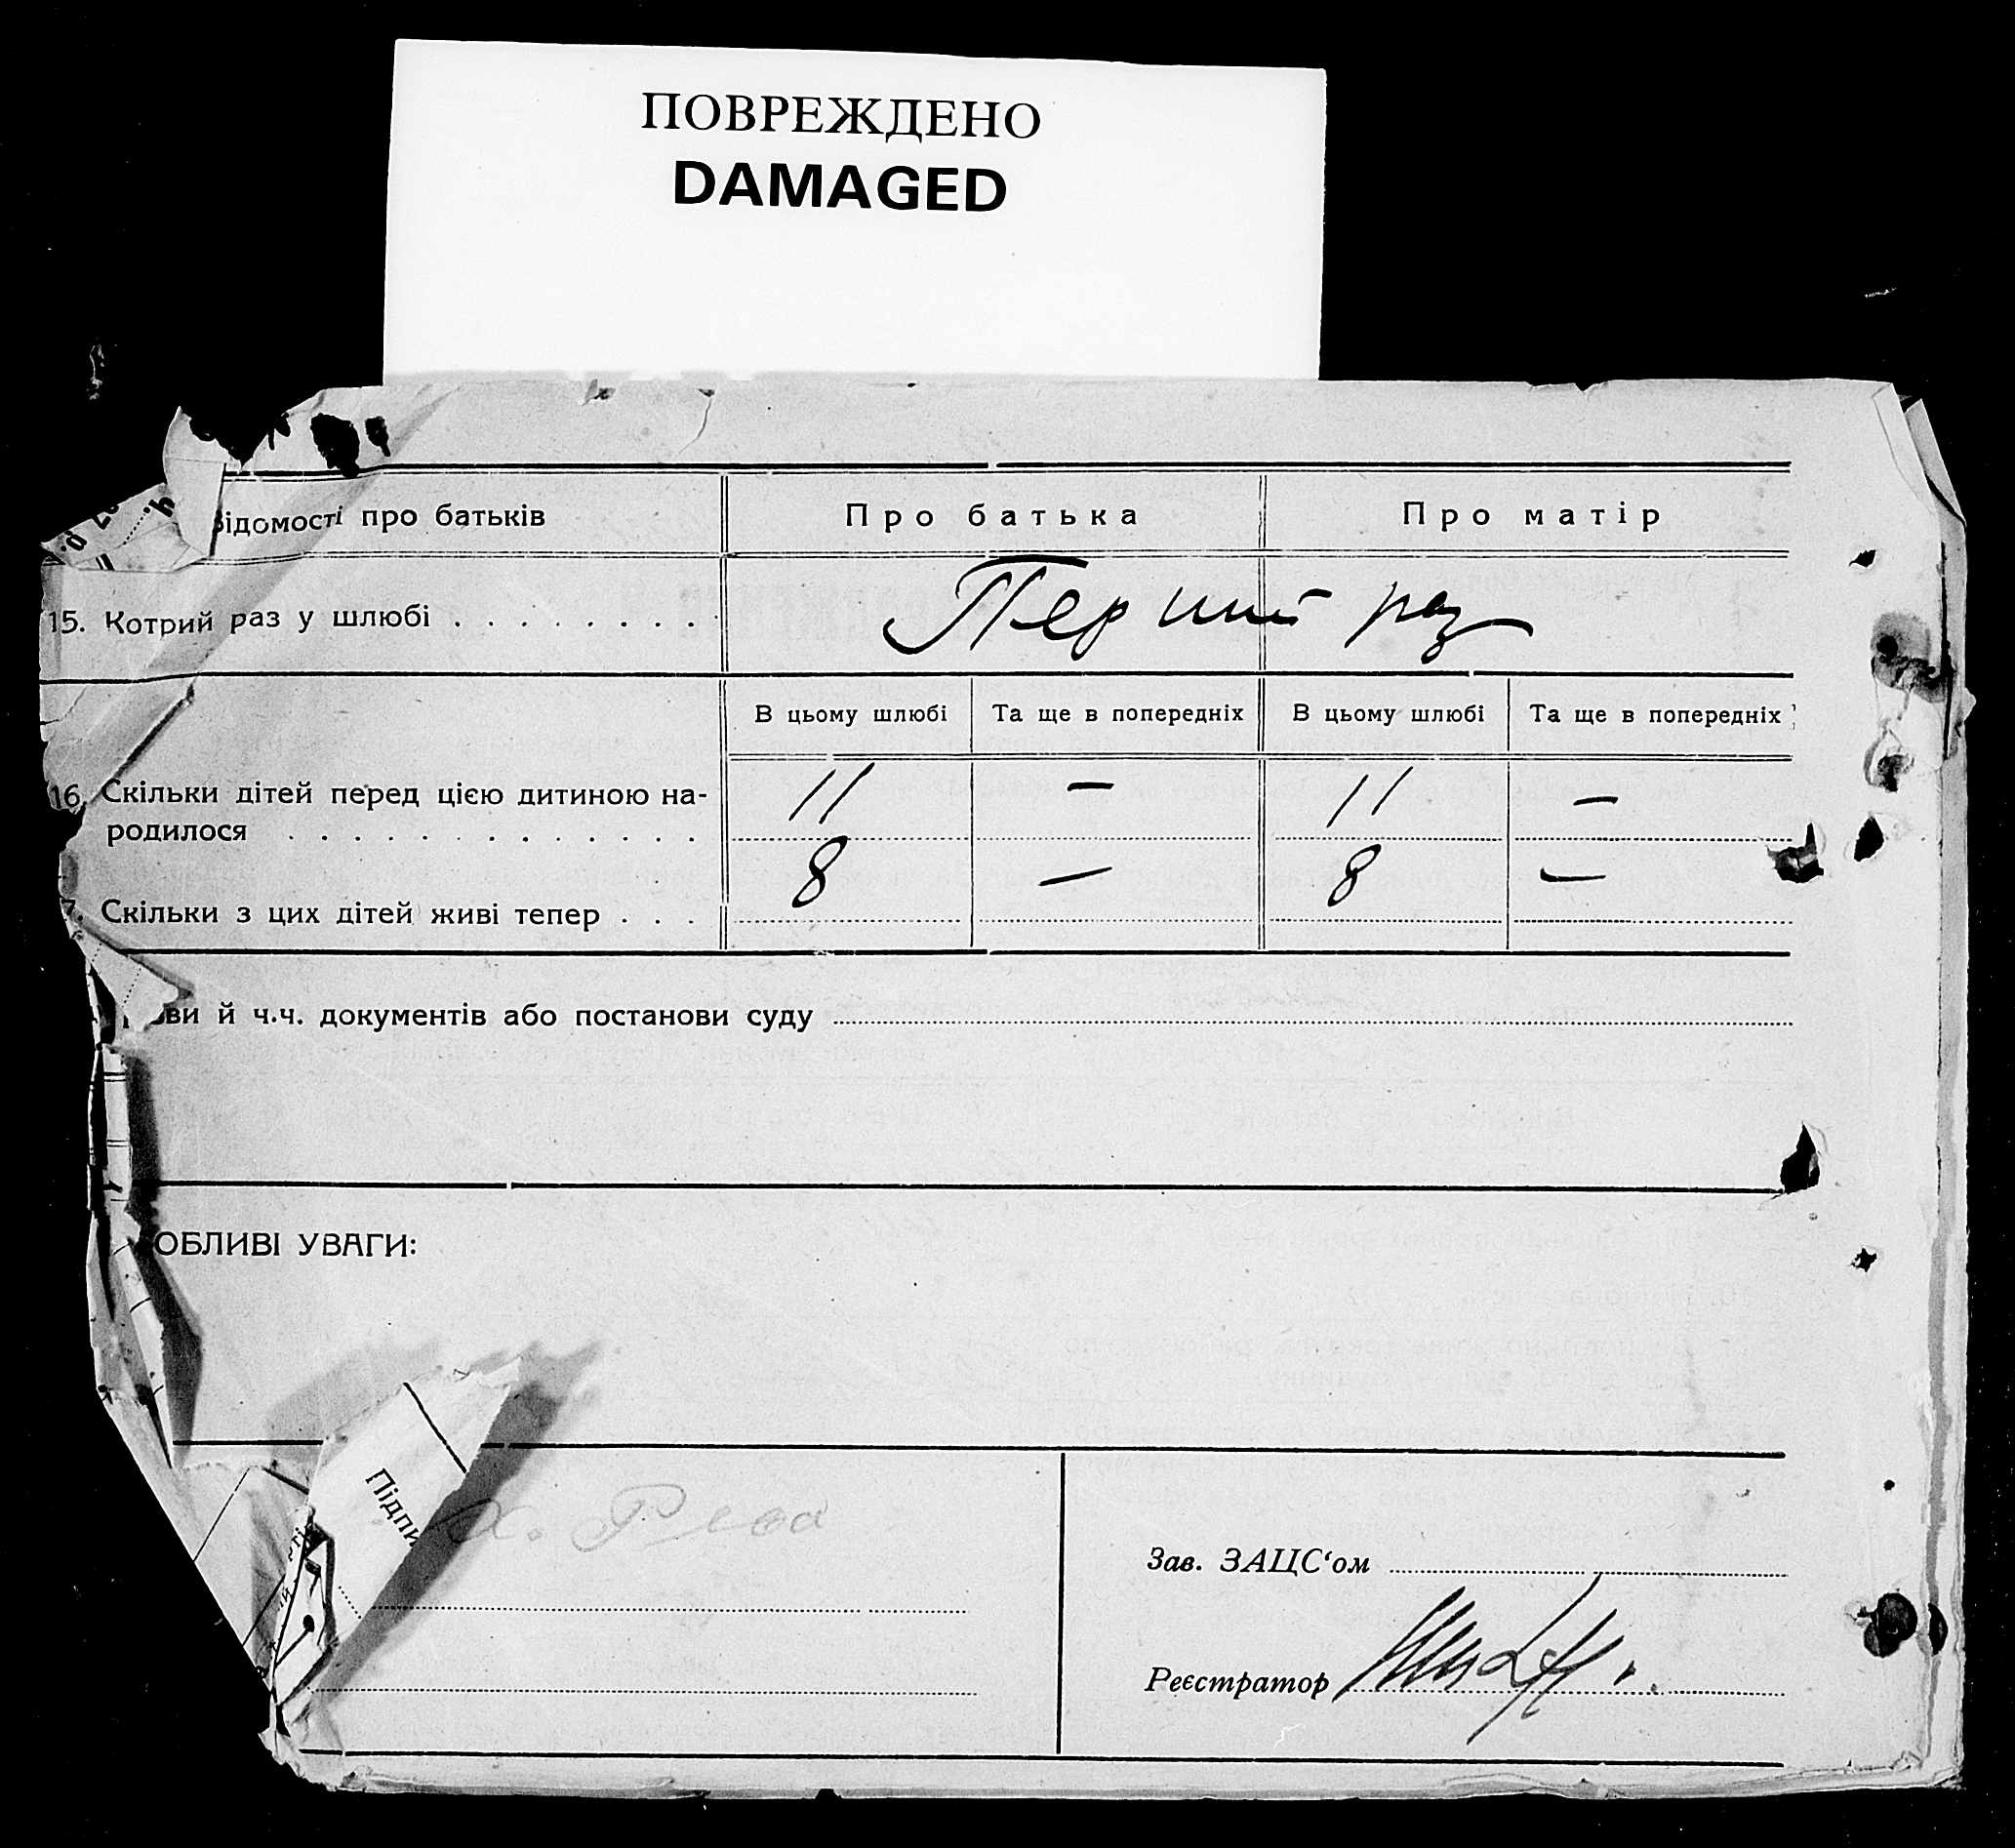 ПОВРЕЖДЕНО
DAMAGED
ідомості про батьків
Про батька
Про матір
15. Котрий раз у шлюбі
Перший раз
В цьому шлюбі
Та ще в попередніх
В цьому шлюбі
Та ще в попередніх
16. Скільки дітей перед цією дитиною на-
родилося
11 — 11 —
7. Скільки з цих дітей живі тепер
8 — 8 —
ви й ч.ч. документів або постанови суду
ОБЛИВІ УВАГИ:
Підпи
Зав. ЗАЦС‘ом
Реєстратор